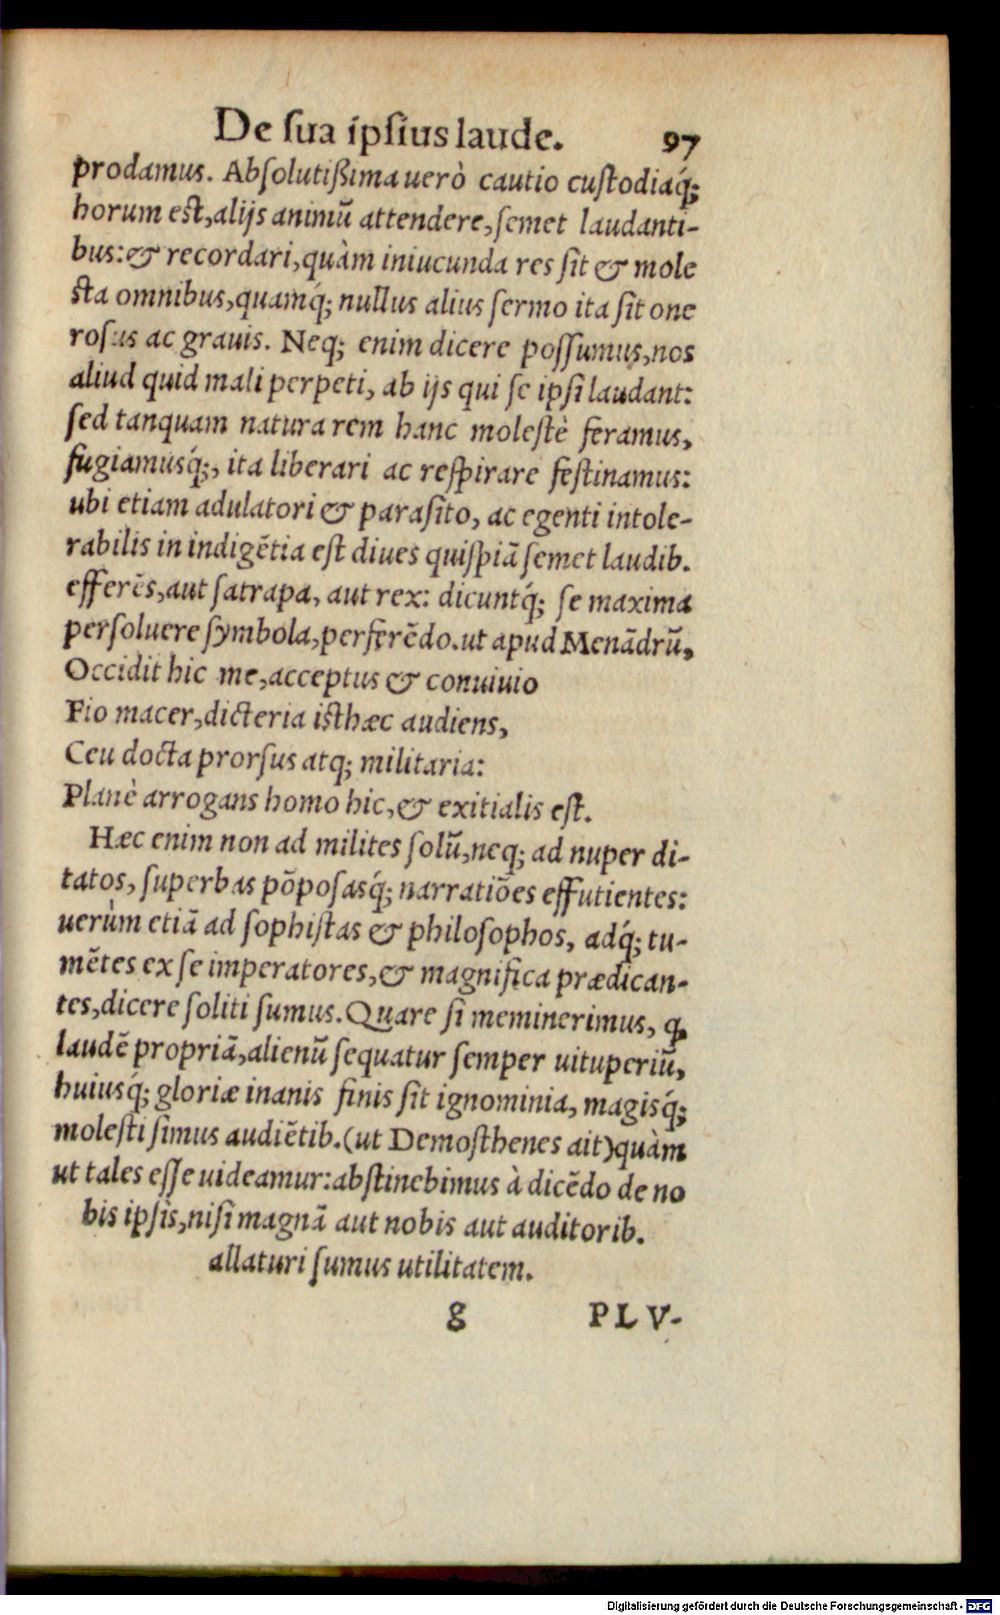 De sua ipsius laude. 97
prodamus. Absolutißima uerò cautio custodiaq́;
horum est, alijs animũ attendere, semet laudanti-
bus: & recordari, quàm iniucunda res sit & mole
sta omnibus, quamq́; nullus alius sermo ita sit one
rosus ac grauis. Neq; enim dicere possumus, nos
aliud quid mali perpeti, ab ijs qui se ipsi laudant:
sed tanquam natura rem hanc molestè feramus,
fugiamusq́;, ita liberari ac respirare festinamus:
ubi etiam adulatori & parasito, ac egenti intole-
rabilis in indigẽtia est diues quispiã semet laudib.
efferẽs, aut satrapa, aut rex: dicuntq́; se maxima
persoluere symbola, perferẽdo. ut apud Menãdrũ,
Occidit hic me, acceptus & conuiuio
Fio macer, dicteria isthæc audiens,
Ceu docta prorsus atq; militaria:
Planè arrogans homo hic, & exitialis est.
Hæc enim non ad milites solũ, neq; ad nuper di-
tatos, superbas põposasq́; narratiões effutientes:
uerùm etiã ad sophistas & philosophos, adq́; tu-
mẽtes ex se imperatores, & magnifica prædican-
tes, dicere soliti sumus. Quare si meminerimus, ꝙ
laudẽ propriã, alienũ sequatur semper uituperiũ,
huiusq́; gloriæ inanis finis sit ignominia, magisq́;
molesti simus audiẽtib. (ut Demosthenes ait) quàm
ut tales esse uideamur: abstinebimus à dicẽdo de no
bis ipsis, nisi magnã aut nobis aut auditorib.
allaturi sumus utilitatem.
g PLV-
Digitalisierung gefördert durch die Deutsche Forschungsgemeinschaft - DFG